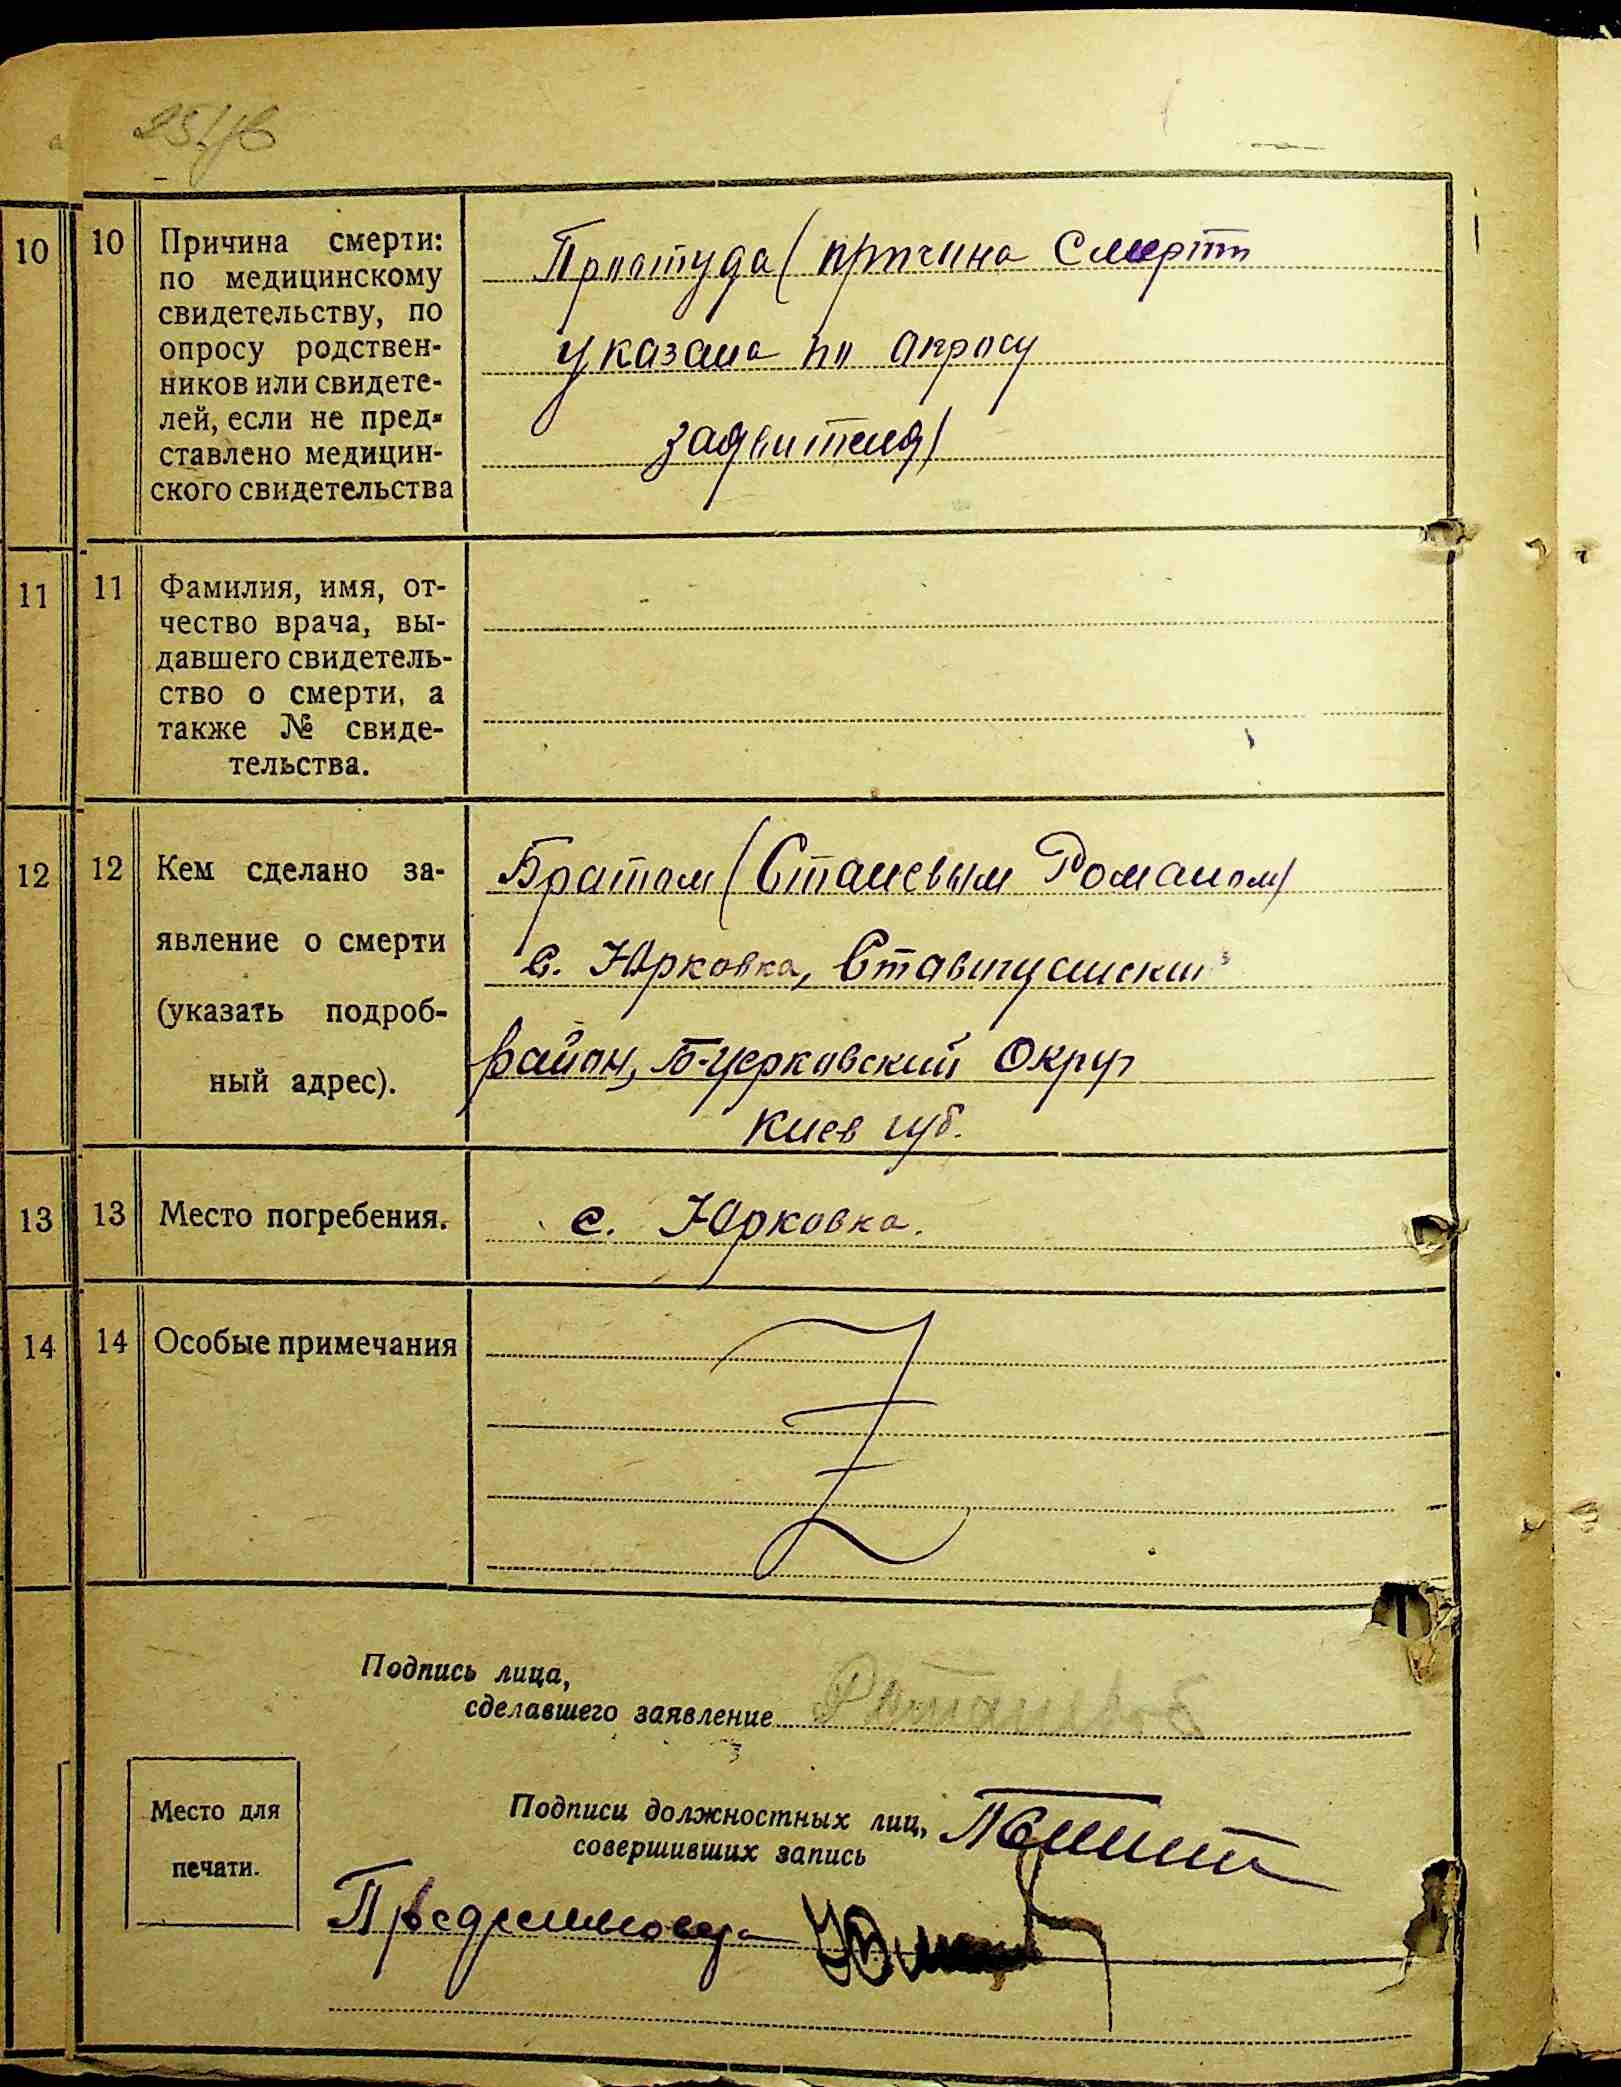 10 10 Причина смерти:
по медицинскому
свидетельству, по
опросу родствен-
ников или свидете-
лей, если не пред-
ставлено медицин-
ского свидетельства
Простуда (причина Смерти
указана по опросу
заявителя)
11 11 Фамилия, имя, от-
чество врача, вы-
давшего свидетель-
ство о смерти, а
также № свиде-
тельства.
12 12 Кем сделано за-
явление о смерти
(указать подроб-
ный адрес).
Братом (Сташевым Романом)
с. Юрковка, Ставищский
район, Б-церковский Округ
Киев губ.
13 13 Место погребения.
с. Юрковка.
14 14 Особые примечания
Подпись лица,
сделавшего заявление
Место для
печати.
Подписи должностных лиц,
совершивших запись